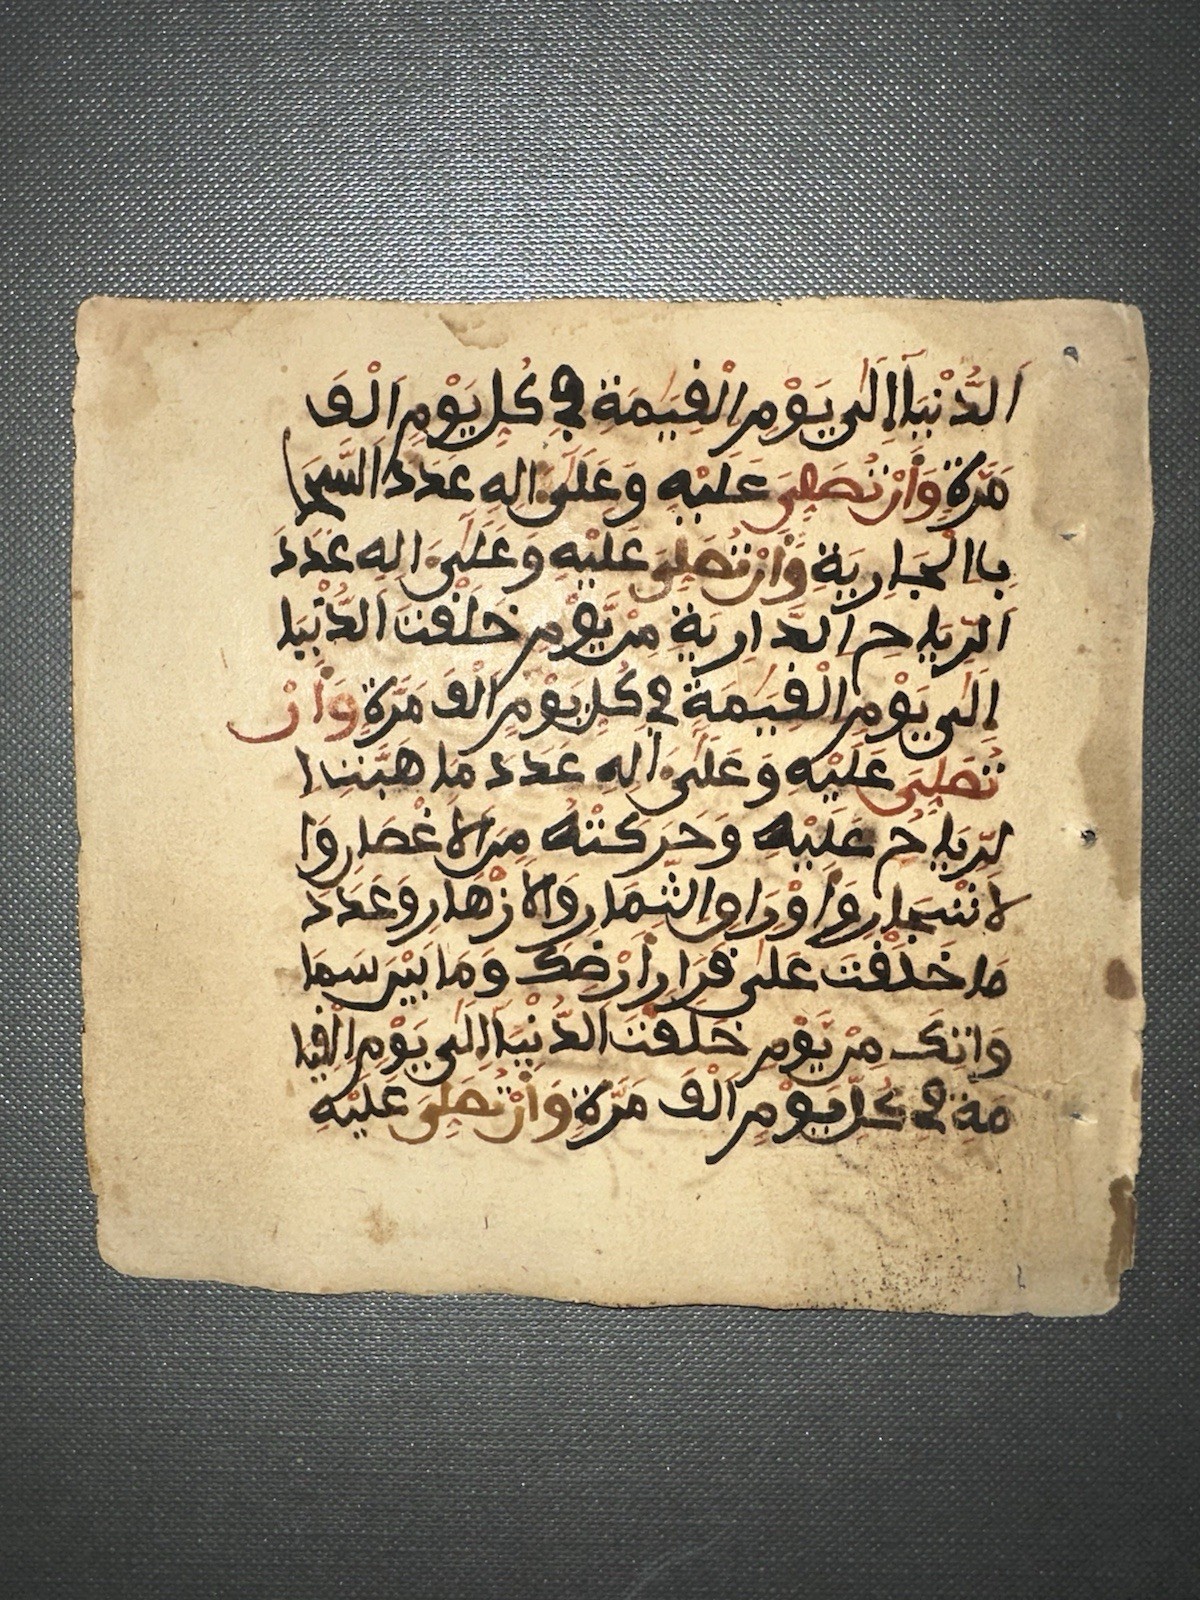 اَلدُّنْيَا اِلَىٰ يَوْمِ الْقِيَٰمَةِ فِي كُلِّ يَوْمٍ اَلْفَ
مَرَّةٍ وَأَنْ تُصَلِّيَ عَلَيْهِ وَعَلَىٰ اٰلِهِ عَدَدَ السَّحَا
بِ الْجَارِيَةِ وَأَنْ تُصَلِّيَ عَلَيْهِ وَعَلَىٰ اٰلِهِ عَدَدَ
الرِّيَاحِ الذَّارِيَةِ مِنْ يَّوْمِ خَلَقْتَ الدُّنْيَا
اِلَىٰ يَوْمِ الْقِيَٰمَةِ فِي كُلِّ يَوْمٍ اَلْفَ مَرَّةٍ وَأَنْ
تُصَلِّيَ عَلَيْهِ وَعَلَىٰ اٰلِهِ عَدَدَ مَا هَبَّتِ ا
لرِّيَاحُ عَلَيْهِ وَحَرَكَتْهُ مِنَ الَاغْصَانِ وَا
لَاشْجَارِ وَاَوْرَاقِ الثِّمَارِ وَالَازْهَارِ وَعَدَدَ
مَا خَلَقْتَ عَلَىٰ قَرَارِ أَرْضِكَ وَمَا بَيْنَ سَمَا
وَاتِكَ مِنْ يَّوْمِ خَلَقْتَ الدُّنْيَا اِلَىٰ يَوْمِ الْقِيَا
مَةِ فِي كُلِّ يَوْمٍ اَلْفَ مَرَّةٍ وَأَنْ تُصَلِّيَ عَلَيْهِ